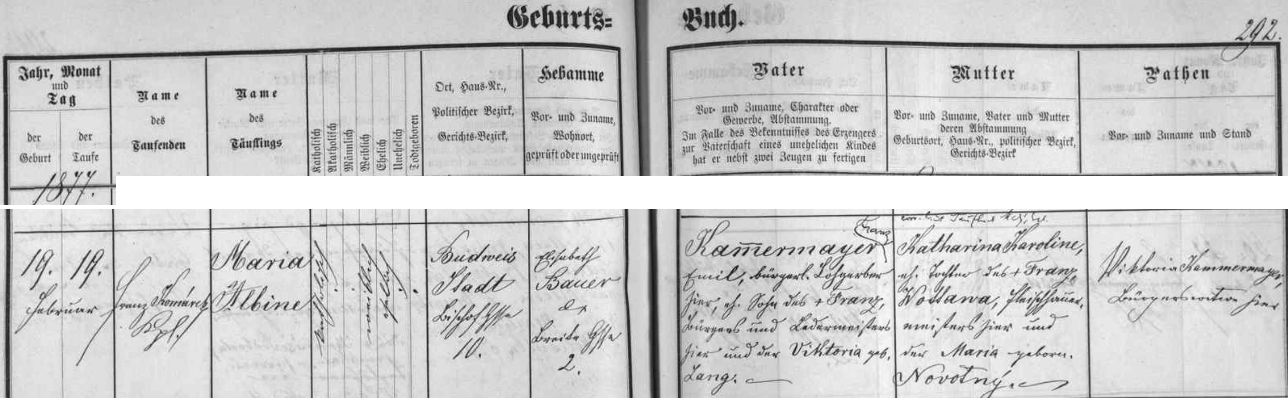 Geburts= Buch.
292.
Jahr, Monat
und
Tag
der
Geburt
der
Taufe
Name
des
Taufenden
Name
des
Täuflings
Katholisch
Akatholisch
Männlich
Weiblich
Ehelich
Unehelich
Todtgeboren
Ort, Haus-Nr.,
Politischer Bezirk,
Gerichts-Bezirk,
Hebamme
Vor- und Zuname,
Wohnort,
geprüft oder ungeprüft
Vater
Vor- und Zuname, Charakter oder
Gewerbe, Abstammung.
Im Falle des Bekenntnisses des Erzeugers
zur Vaterschaft eines unehelichen Kindes
hat er nebst zwei Zeugen zu fertigen
Mutter
Vor- und Zuname, Vater und Mutter
deren Abstammung
Geburtsort, Haus-Nr., politischer Bezirk,
Gerichts-Bezirk
Pathen
Vor- und Zuname und Stand
1877.
19. 19.
Februar
Franz Komárek
Kpl.
Maria
Albine
katholisch
weiblich
ehelich
Budweis
Stadt
Bischof Gsse
10.
Elisabeth
Bauer
Breite Gsse
2.
Franz
Kam̄ermayer
Emil, bürgerl. Lohgerber
hier, eh. Sohn des + Franz,
Bürgers und Ledermeisters
hier und der Viktoria geb.
Lang.
Katharina Karoline,
eh. Tochter des + Franz
Wottawa, Fleischhauer-
meisters hier und
der Maria geborn.
Novotný.
Viktoria Kammermayer,
Bürgerswitwe hier